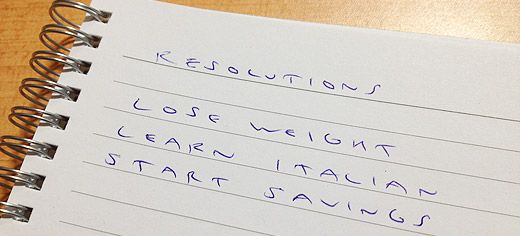 RESOLUTIONS
LOSE WEIGHT
LEARN ITALIAN
START SAVINGS